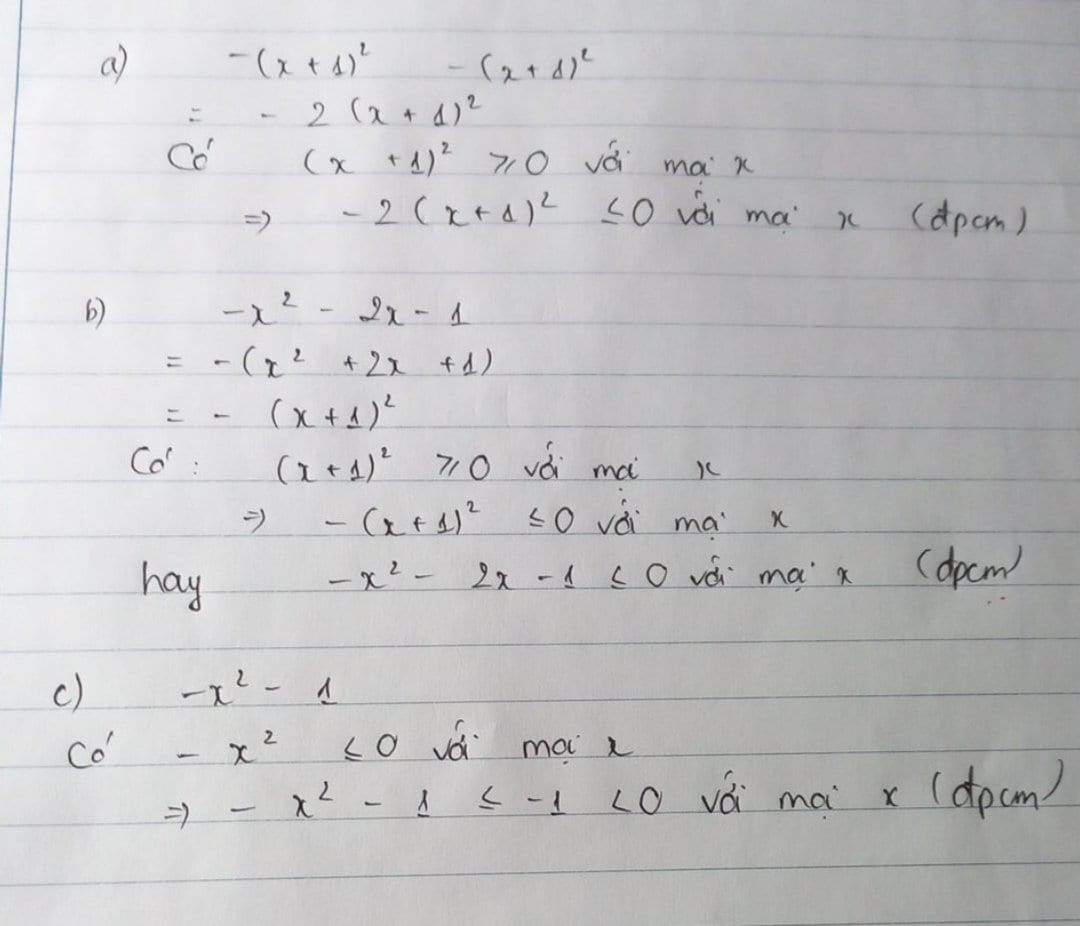 a) -(x + 1)² -(x + 1)²
= - 2 (x + 1)²
Có (x + 1)² ⩾ 0 với mọi x
=> - 2 (x + 1)² ≤ 0 với mọi x (đpcm)
b) -x² - 2x - 1
= -(x² + 2x + 1)
= - (x + 1)²
Có : (x + 1)² ⩾ 0 với mọi x
=> - (x + 1)² ≤ 0 với mọi x
hay -x² - 2x - 1 ≤ 0 với mọi x (đpcm)
c) -x² - 1
Có - x² ≤ 0 với mọi x
=> - x² - 1 ≤ -1 < 0 với mọi x (đpcm)